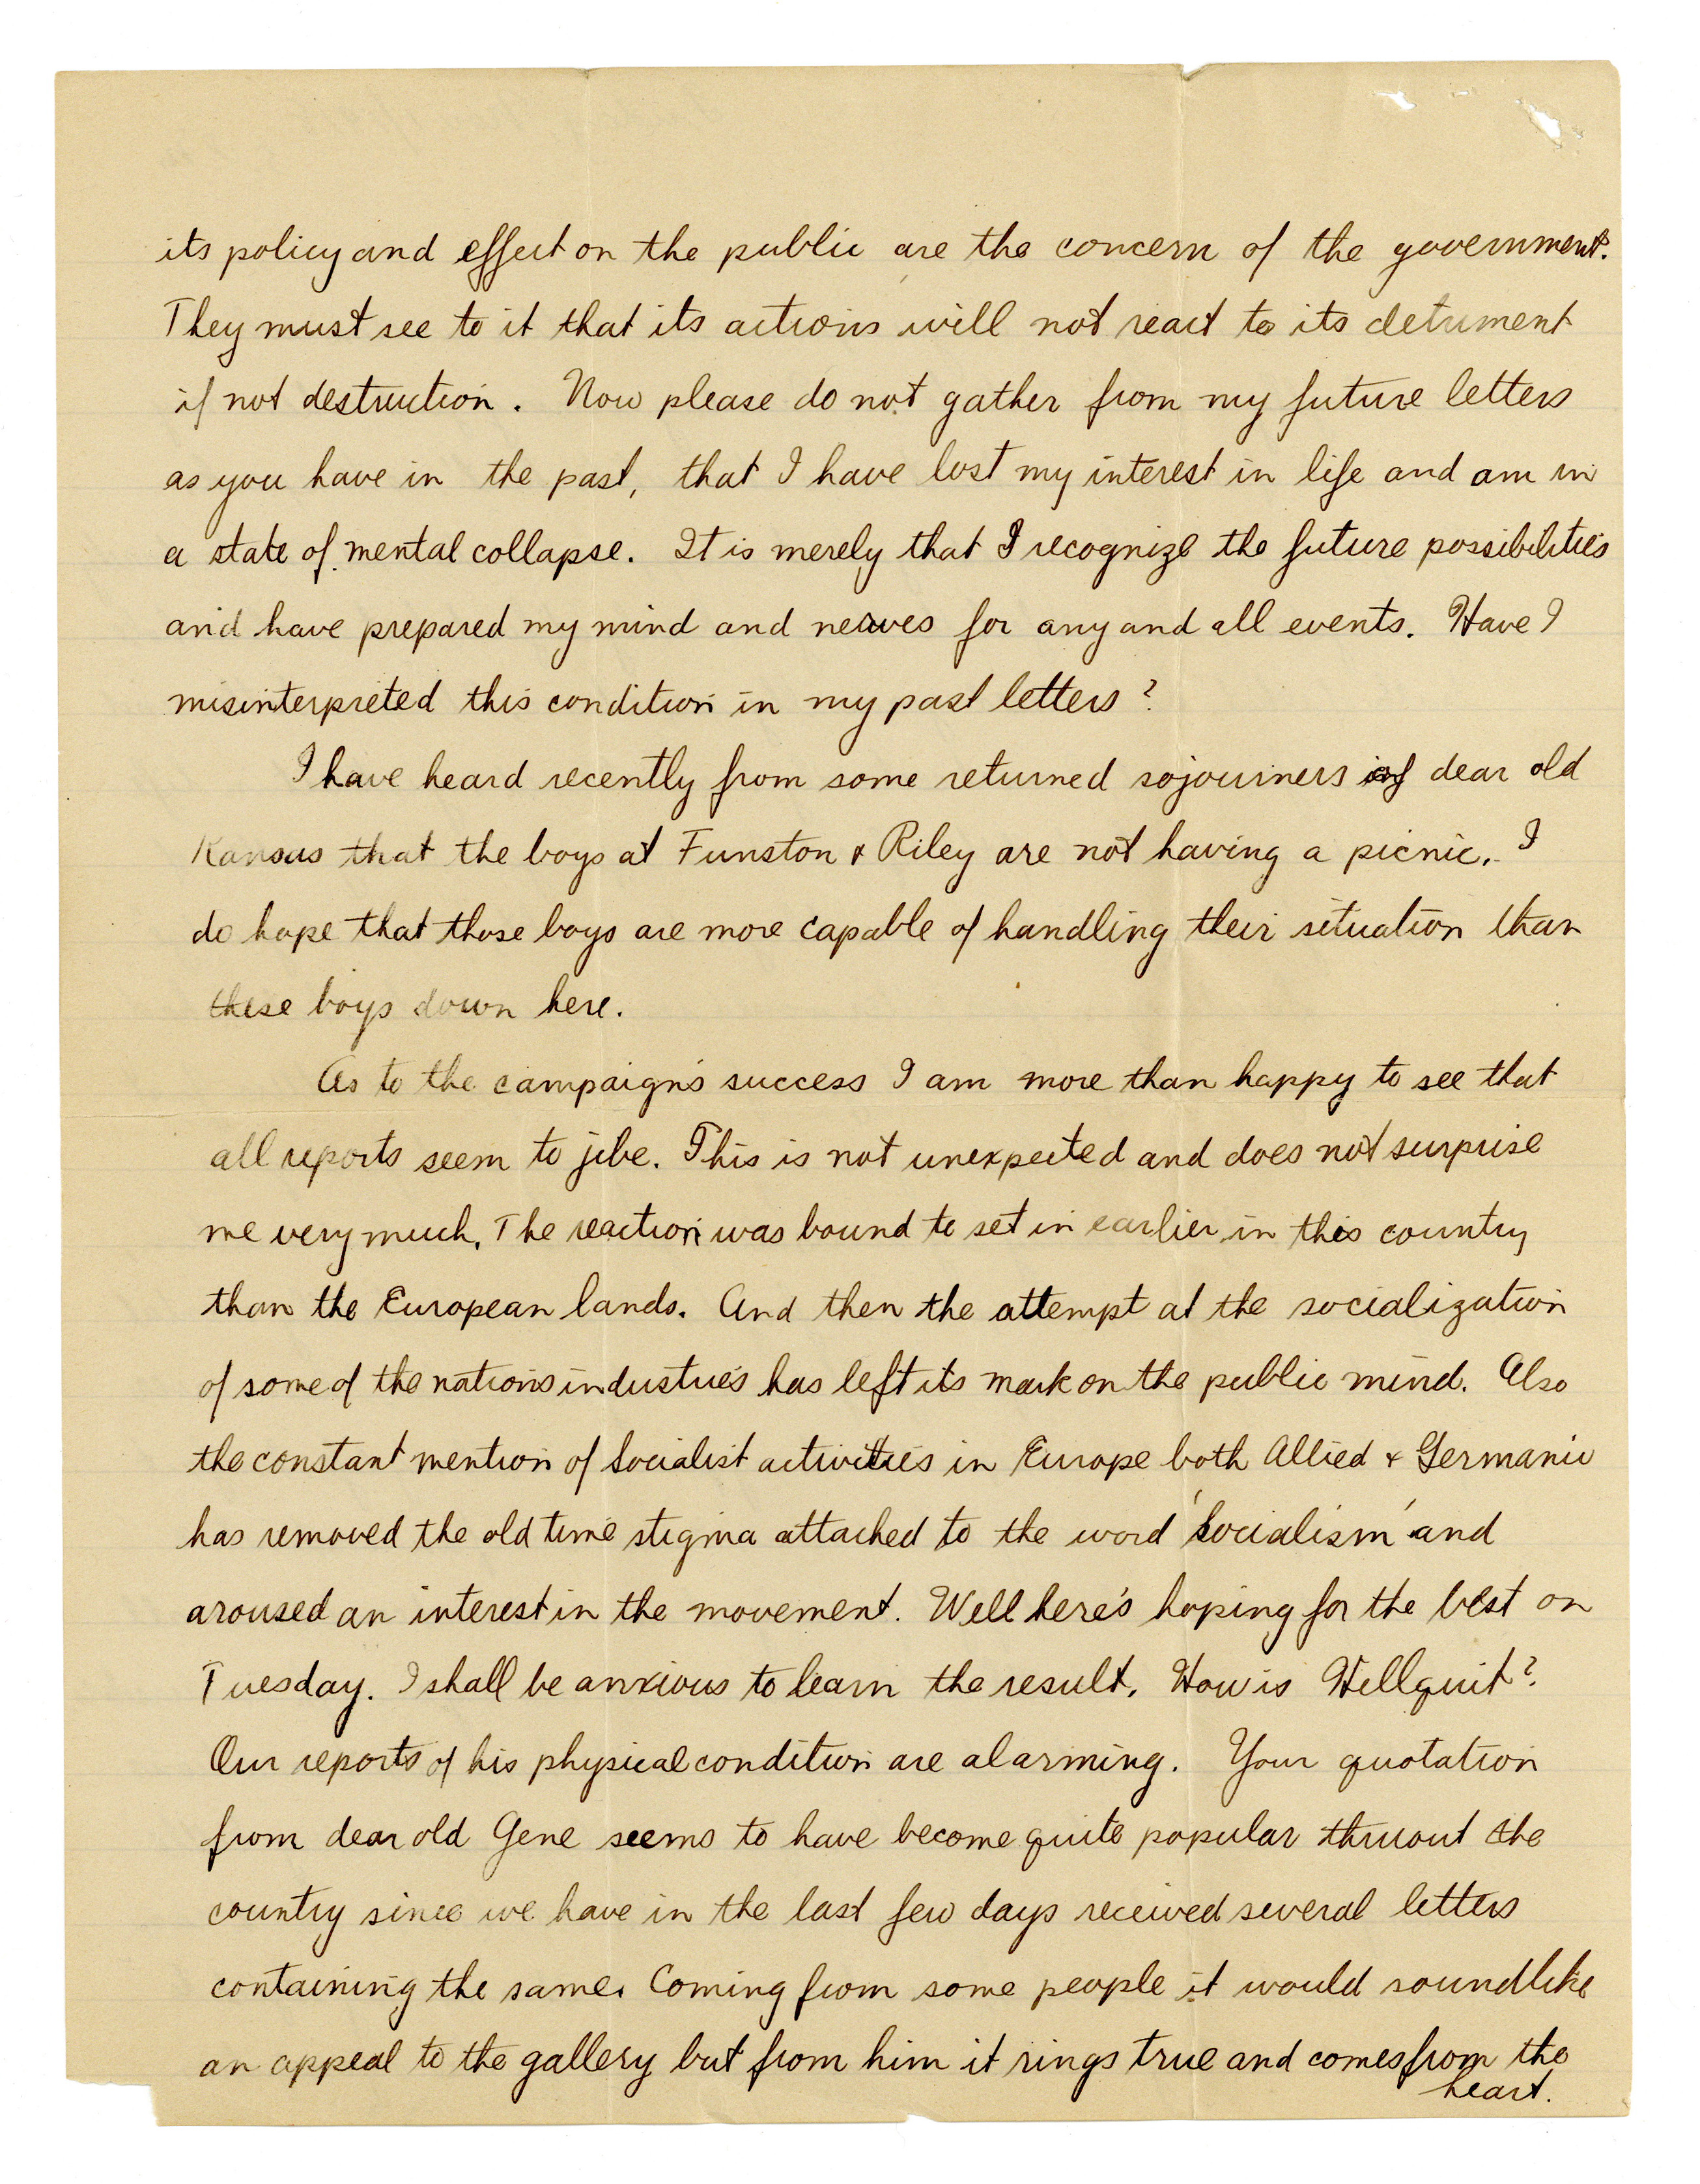 its policy and effect on the public are the concern of the government.
They must see to it that its actions will not react to its detriment
if not destruction. Now please do not gather from my future letters
as you have in the past, that I have lost my interest in life and am in
a state of mental collapse. It is merely that I recognize the future possibilities
and have prepared my mind and nerves for any and all events. Have I
misinterpreted this condition in my past letters?
I have heard recently from some returned sojourners of dear old
Kansas that the boys at Funston & Riley are not having a picnic. I
do hope that those boys are more capable of handling their situation than
these boys down here.
As to the campaign's success I am more than happy to see that
all reports seem to jibe. This is not unexpected and does not surprise
me very much. The reaction was bound to set in earlier in this country
than the European lands. And then the attempt at the socialization
of some of the nation's industries has left its mark on the public mind. Also
the constant mention of Socialist activities in Europe both Allied & Germanic
has removed the old time stigma attached to the word 'Socialism' and
aroused an interest in the movement. Well here's hoping for the best on
Tuesday. I shall be anxious to learn the result. How is Hillquit?
Our reports of his physical condition are alarming. Your quotation
from dear old Gene seems to have become quite popular thruout the
country since we have in the last few days received several letters
containing the same. Coming from some people it would sound like
an appeal to the gallery but from him it rings true and comes from the
heart.